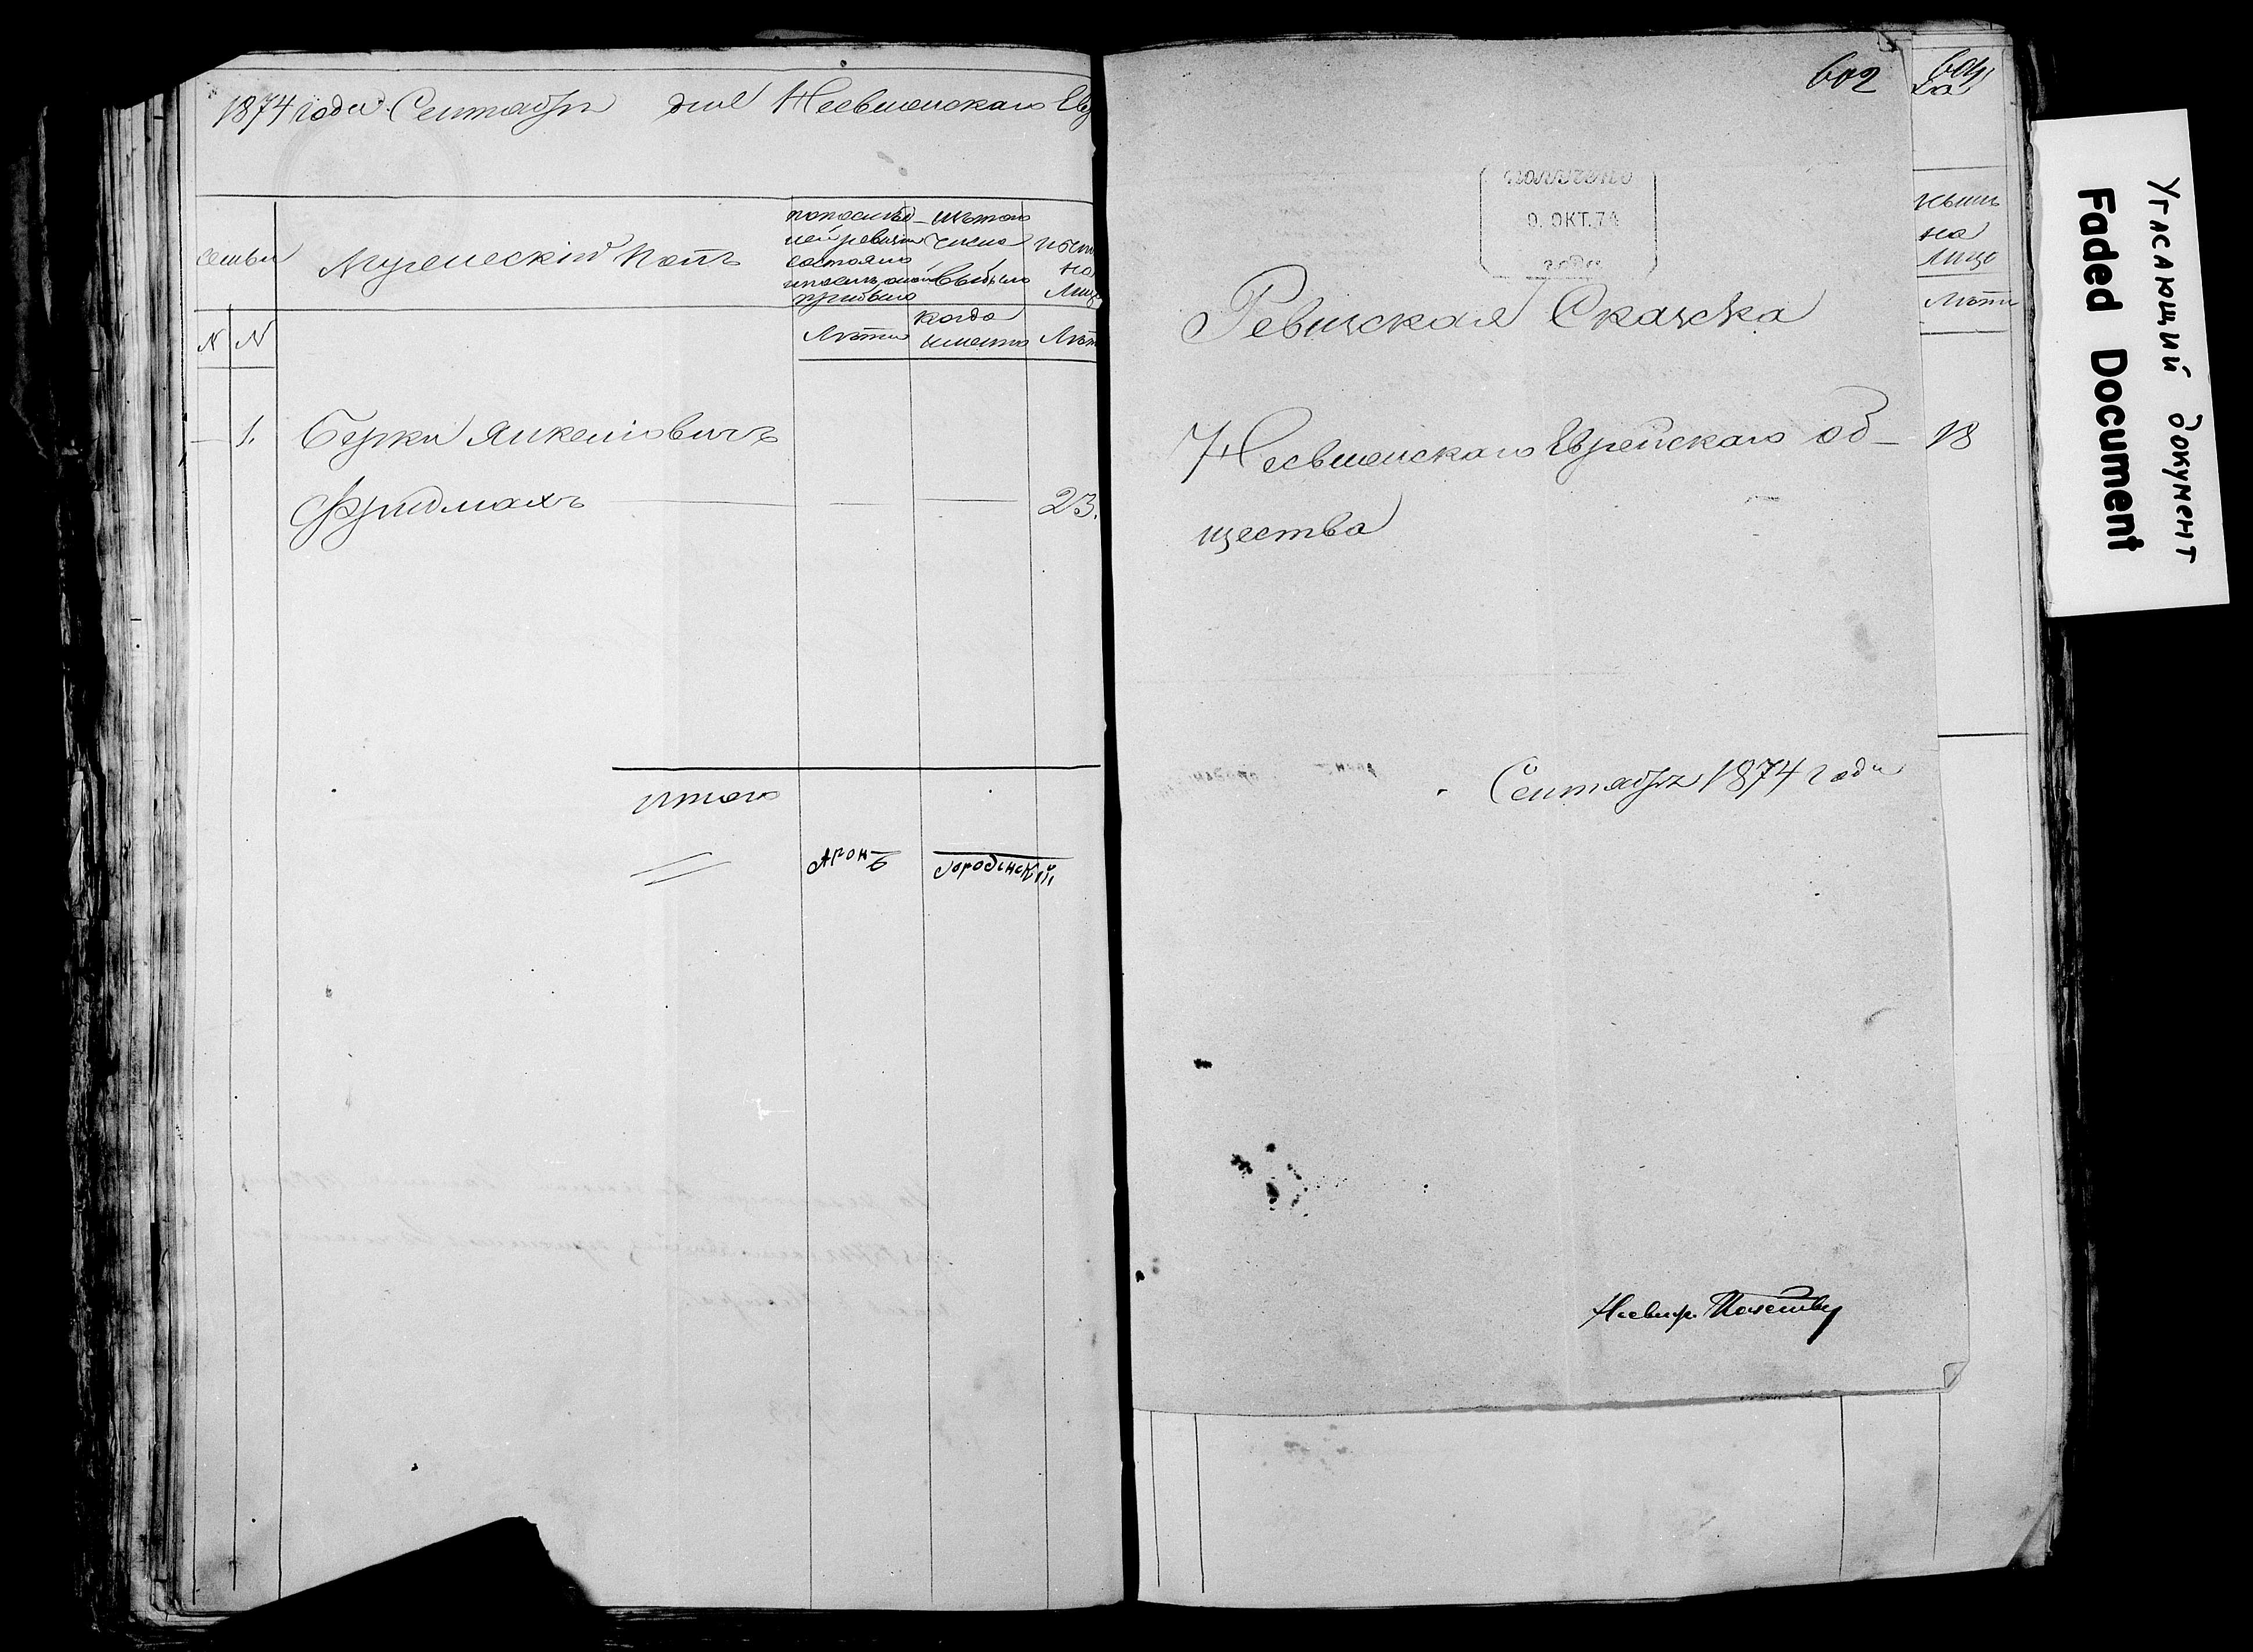 1874 года Сентября дня Несвижскаго Евр
семьи
Мужескій полъ
по послѣд-
ней ревизіи
состояло
и послѣ оной
прибыло
изъ того
числа
выбыло
нынѣ
на
лицо
N N
Лѣта
когда
именно
Лѣта
1. Берка Янкелiовичъ
Фридманъ 23.
Итого
Аронъ Городискій
602
ПОЛУЧЕНО
9. ОКТ. 74
года
Ревизская Сказка
Несвижскаго Еврейскаго об-
щества
Сентября 1874 года
нынѣ
на
лицо
Лѣта
18
Угасающий документ
Faded Document